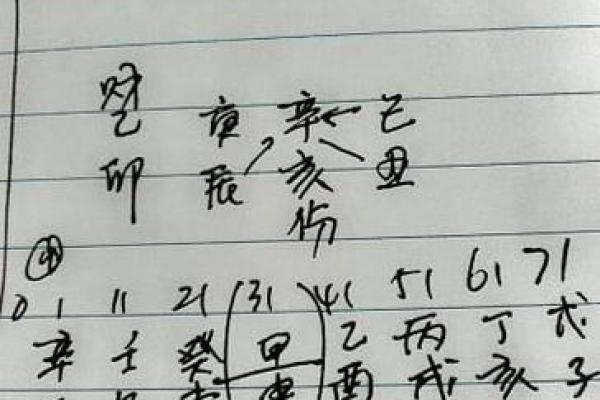 财
乙 庚 辛 己
卯 辰 亥 丑
伤
0 1 11 21 31 41 51 61 71
辛 壬 癸 甲 乙 丙 丁 戊
申 酉 戌 亥 子